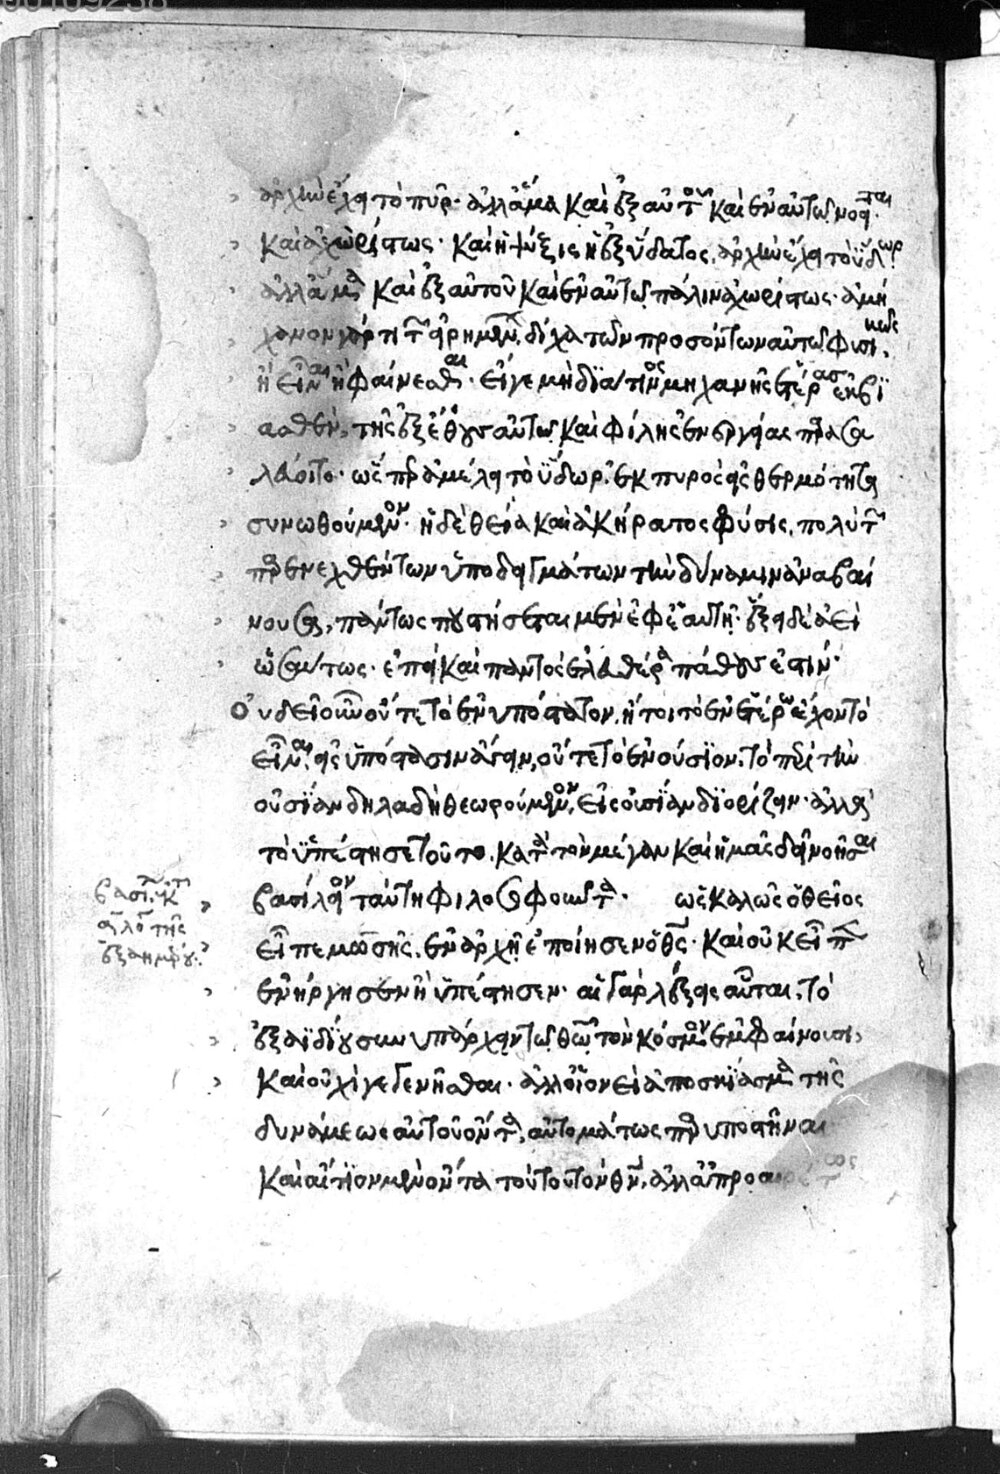 ἀρχὴν ἔχει τὸ πῦρ· ἀλλ' ἅμα καὶ ἐξ αὐτοῦ καὶ ἐν αὐτῷ νοεῖται
καὶ ἀχωρίστως· καὶ ἡ ψύξις ἡ ἐξ ὕδατος, ἀρχὴν ἔχει τὸ ὕδωρ
ἀλλ' ἅμα καὶ ἐξ αὐτοῦ καὶ ἐν αὐτῷ πάλιν ἀχωρίστως· ἀμή
χανον γάρ τι τῶν εἰρημένων, δίχα τῶν προσόντων αὐτῷ φυσικῶς
ἢ εἶναι ἢ φαίνεσθαι· εἴγε μὴ διά τινος μηχανῆς ἑτέρας ἐκβι
ασθὲν, τῆς ἐξ ἔθους αὐτῷ καὶ φίλης ἐνεργείας
ὕδωρ, ἐκ πυρὸς εἰς θερμότητα
συνωθούμενον· ἡ δὲ θεία καὶ ἀκήρατος φύσις, πολὺ τῶν
ὑποδειγμάτων τὴν δύναμιν ἀναβαί
νουσα, πάντως που στήσεται μὲν ἐφ' ἑαυτῇ· ἕξει δὲ ἀεὶ
ὡσαύτως· ἐπεὶ καὶ παντὸς ἐλευθέρα πάθους ἐστίν·
Οὐδεὶς οὖν οὔτε τὸ ἐνυπόστατον, ἤτοι τὸ ἐν ἑτέρῳ ἔχον τὸ
εἶναι, εἰς ὑπόστασιν ἄγειν, οὔτε τὸ ἐνούσιον, τὸ περὶ τὴν
οὐσίαν δηλαδὴ θεωρούμενον, εἰς οὐσίαν διορίζειν· ἀλλὰ
τὸ ὑπέστησε τοῦτο, κατὰ τὸν μέγαν καὶ ἡμᾶς δεῖ νοῆσαι
βασίλειον ταύτῃ φιλοσοφοῦντα· ὡς καλῶς ὁ θεῖος
εἶπε μωσῆς, ἐν ἀρχῇ ἐποίησεν ὁ θς· καὶ οὐκ εἶπεν
ἐνήργησεν ἢ ὑπέστησεν· αἱ γὰρ λέξεις αὗται, τὸ
ἐξ ἀϊδίου συνυπάρχειν τῷ θεῷ τὸν κόσμον ἐμφαίνουσι,
καὶ οὐχὶ γεγενῆσθαι· ἀλλ' οἷον εἰ ἀποσκίασμα τῆς
δυνάμεως αὐτοῦ ὄντα, αὐτομάτως παρυποστῆναι
καὶ αἴτιον μὲν ὄντα τούτου τὸν θν, ἀλλ' ἀπροαιρέτως
βασι
τῆς
ἑξαημέρου·